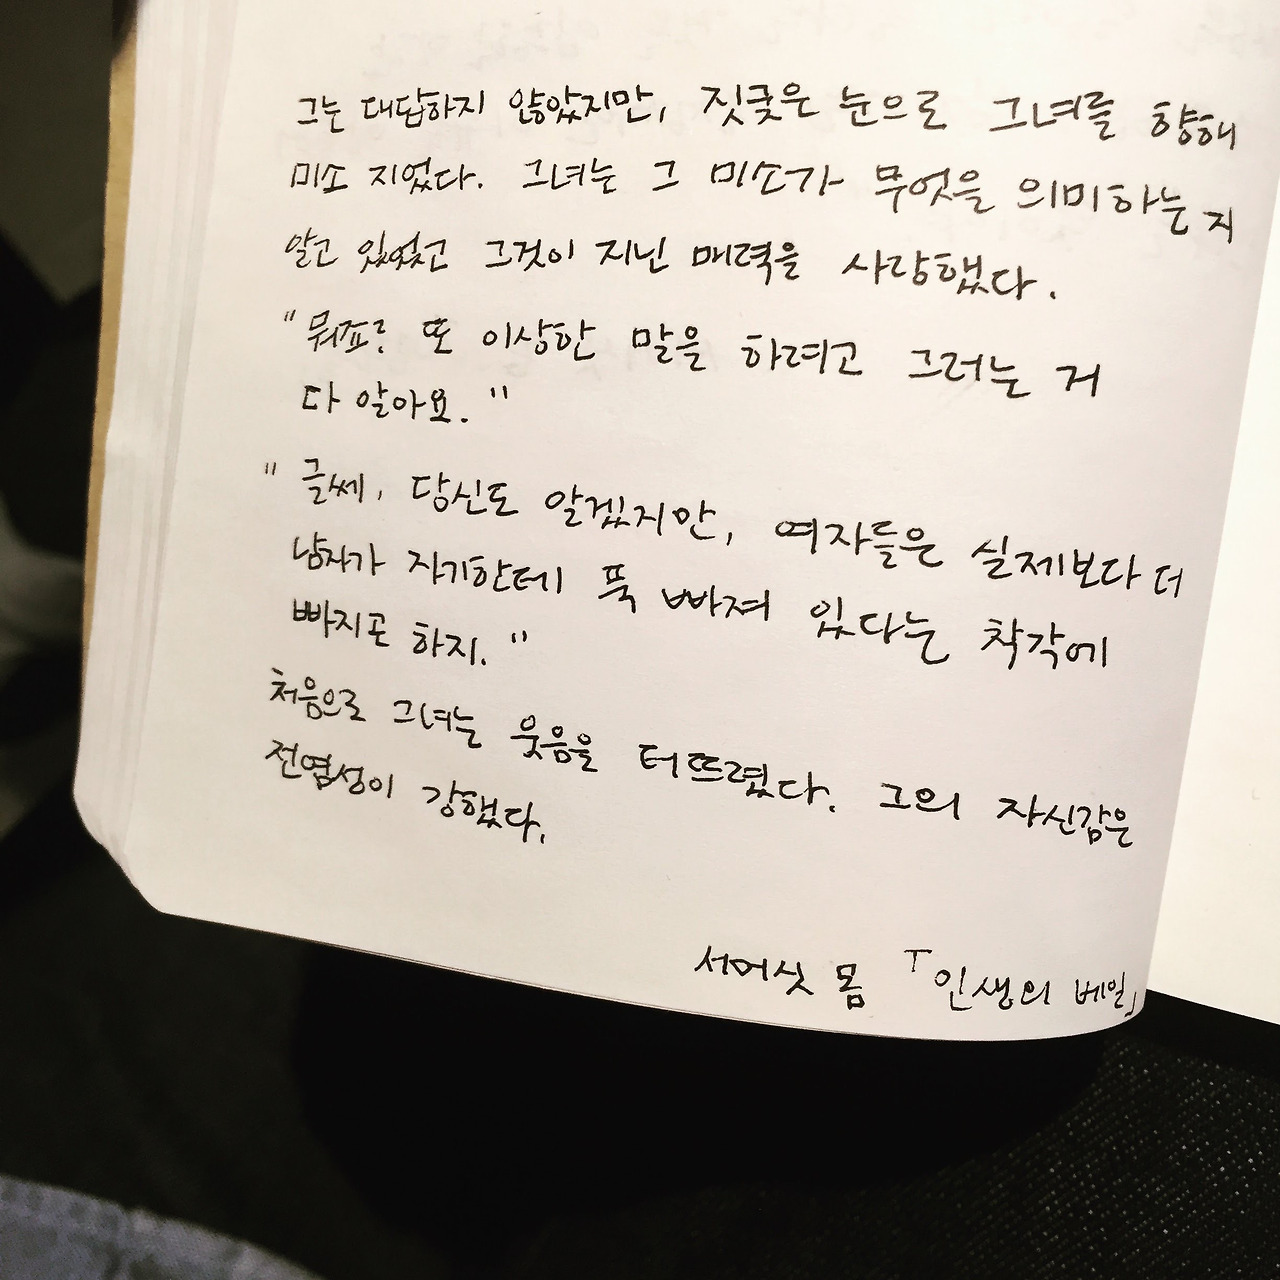 그는 대답하지 않았지만, 짓궂은 눈으로 그녀를 향해
미소 지었다. 그녀는 그 미소가 무엇을 의미하는지
알고 있었고 그것이 지닌 매력을 사랑했다.
"뭐죠? 또 이상한 말을 하려고 그러는 거
다 알아요."
"글쎄, 당신도 알겠지만, 여자들은 실제보다 더
남자가 자기한테 푹 빠져 있다는 착각에
빠지곤 하지."
처음으로 그녀는 웃음을 터뜨렸다. 그의 자신감은
전염성이 강했다.
서머싯 몸 「인생의 베일」